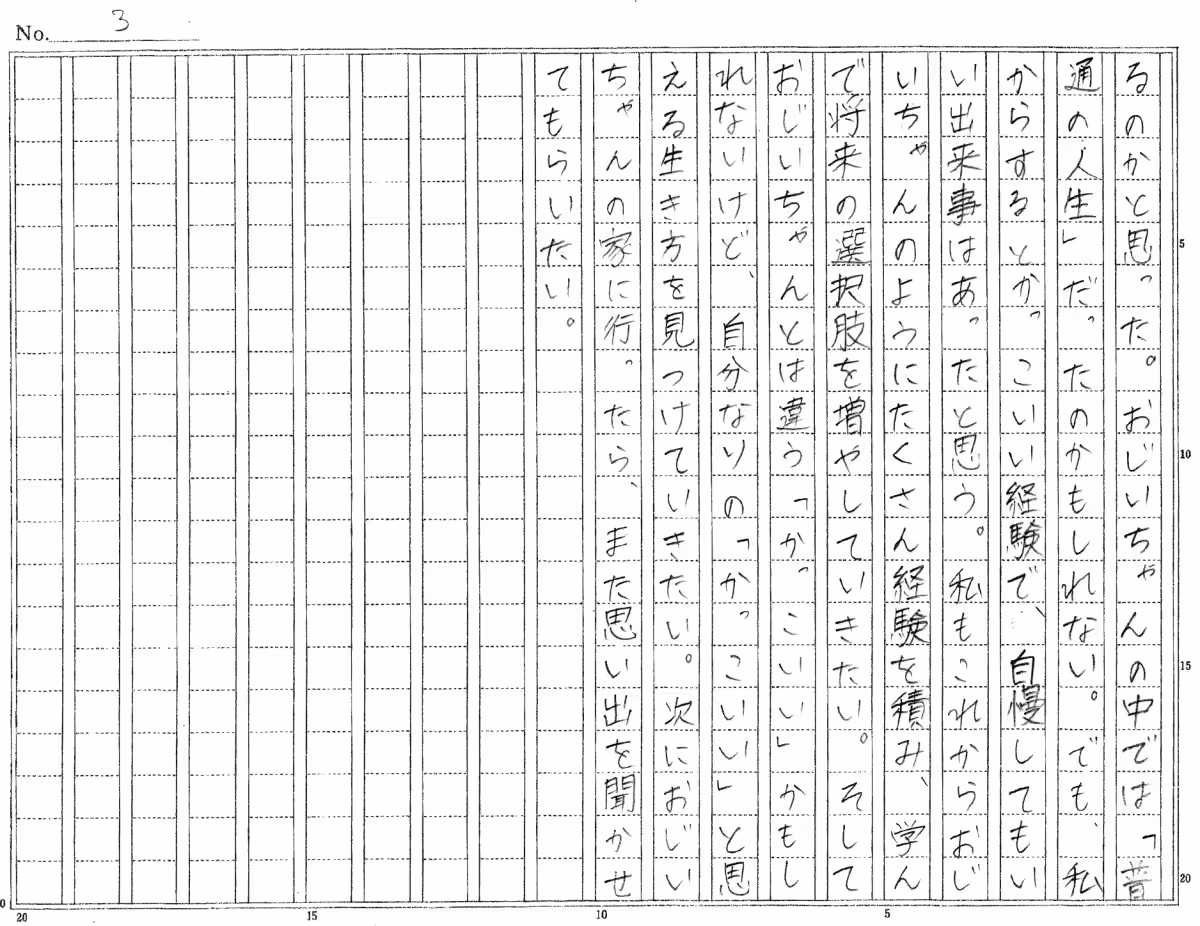 No. 3
るのかと思った。おじいちゃんの中では「普
通の人生」だったのかもしれない。でも、私
からするとかっこいい経験で、自慢してもい
い出来事はあったと思う。私もこれからおじ
いちゃんのようにたくさん経験を積み、学ん
で将来の選択肢を増やしていきたい。そして
おじいちゃんとは違う「かっこいい」かもし
れないけど、自分なりの「かっこいい」と思
える生き方を見つけていきたい。次におじい
ちゃんの家に行ったら、また思い出を聞かせ
てもらいたい。
5
10
15
20
0
20
15
10
5